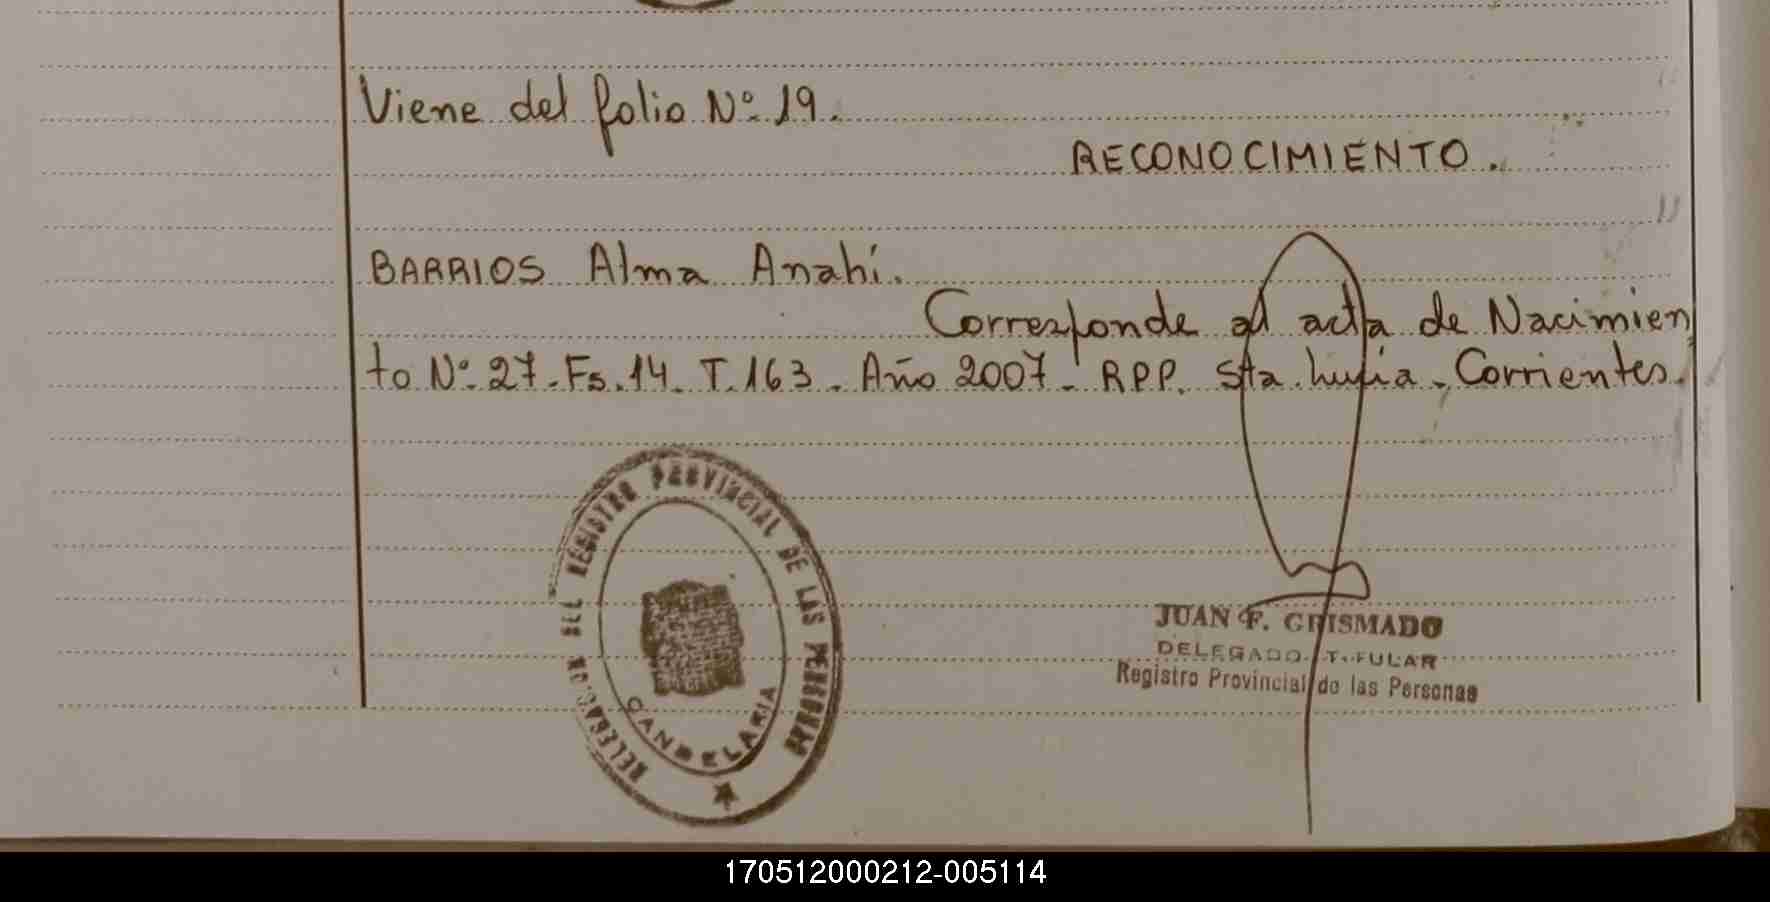 Viene del folio Nº 19.
RECONOCIMIENTO.
BARRIOS Alma Anahí.
Corresponde al acta de Nacimien
to Nº 27. Fs. 14. T. 163. Año 2007. RPP. Sta. Lucía. Corrientes.
DELEGACION DEL REGISTRO PROVINCIAL DE LAS PERSONAS
CANDELARIA
JUAN F. GRISMADO
DELEGADO TITULAR
Registro Provincial de las Personas
170512000212-005114